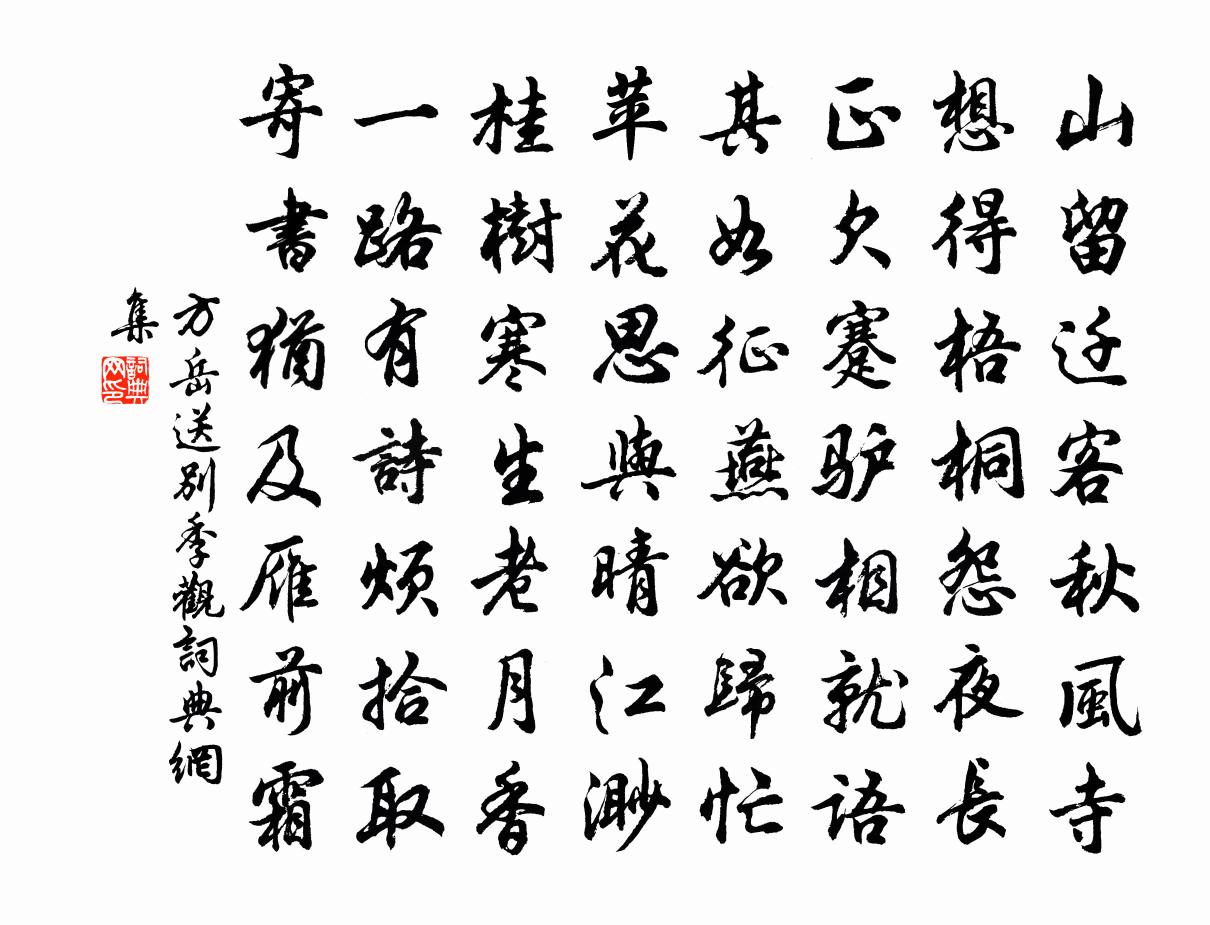 山留迂客秋風寺
想得梧桐怨夜長
正欠蹇驴相就语
其如征燕欲歸忙
苹花思與晴江渺
桂樹寒生老月香
一路有詩煩拾取
寄書猶及雁前霜
方岳送别季觀詞典網
集
詞典
网印